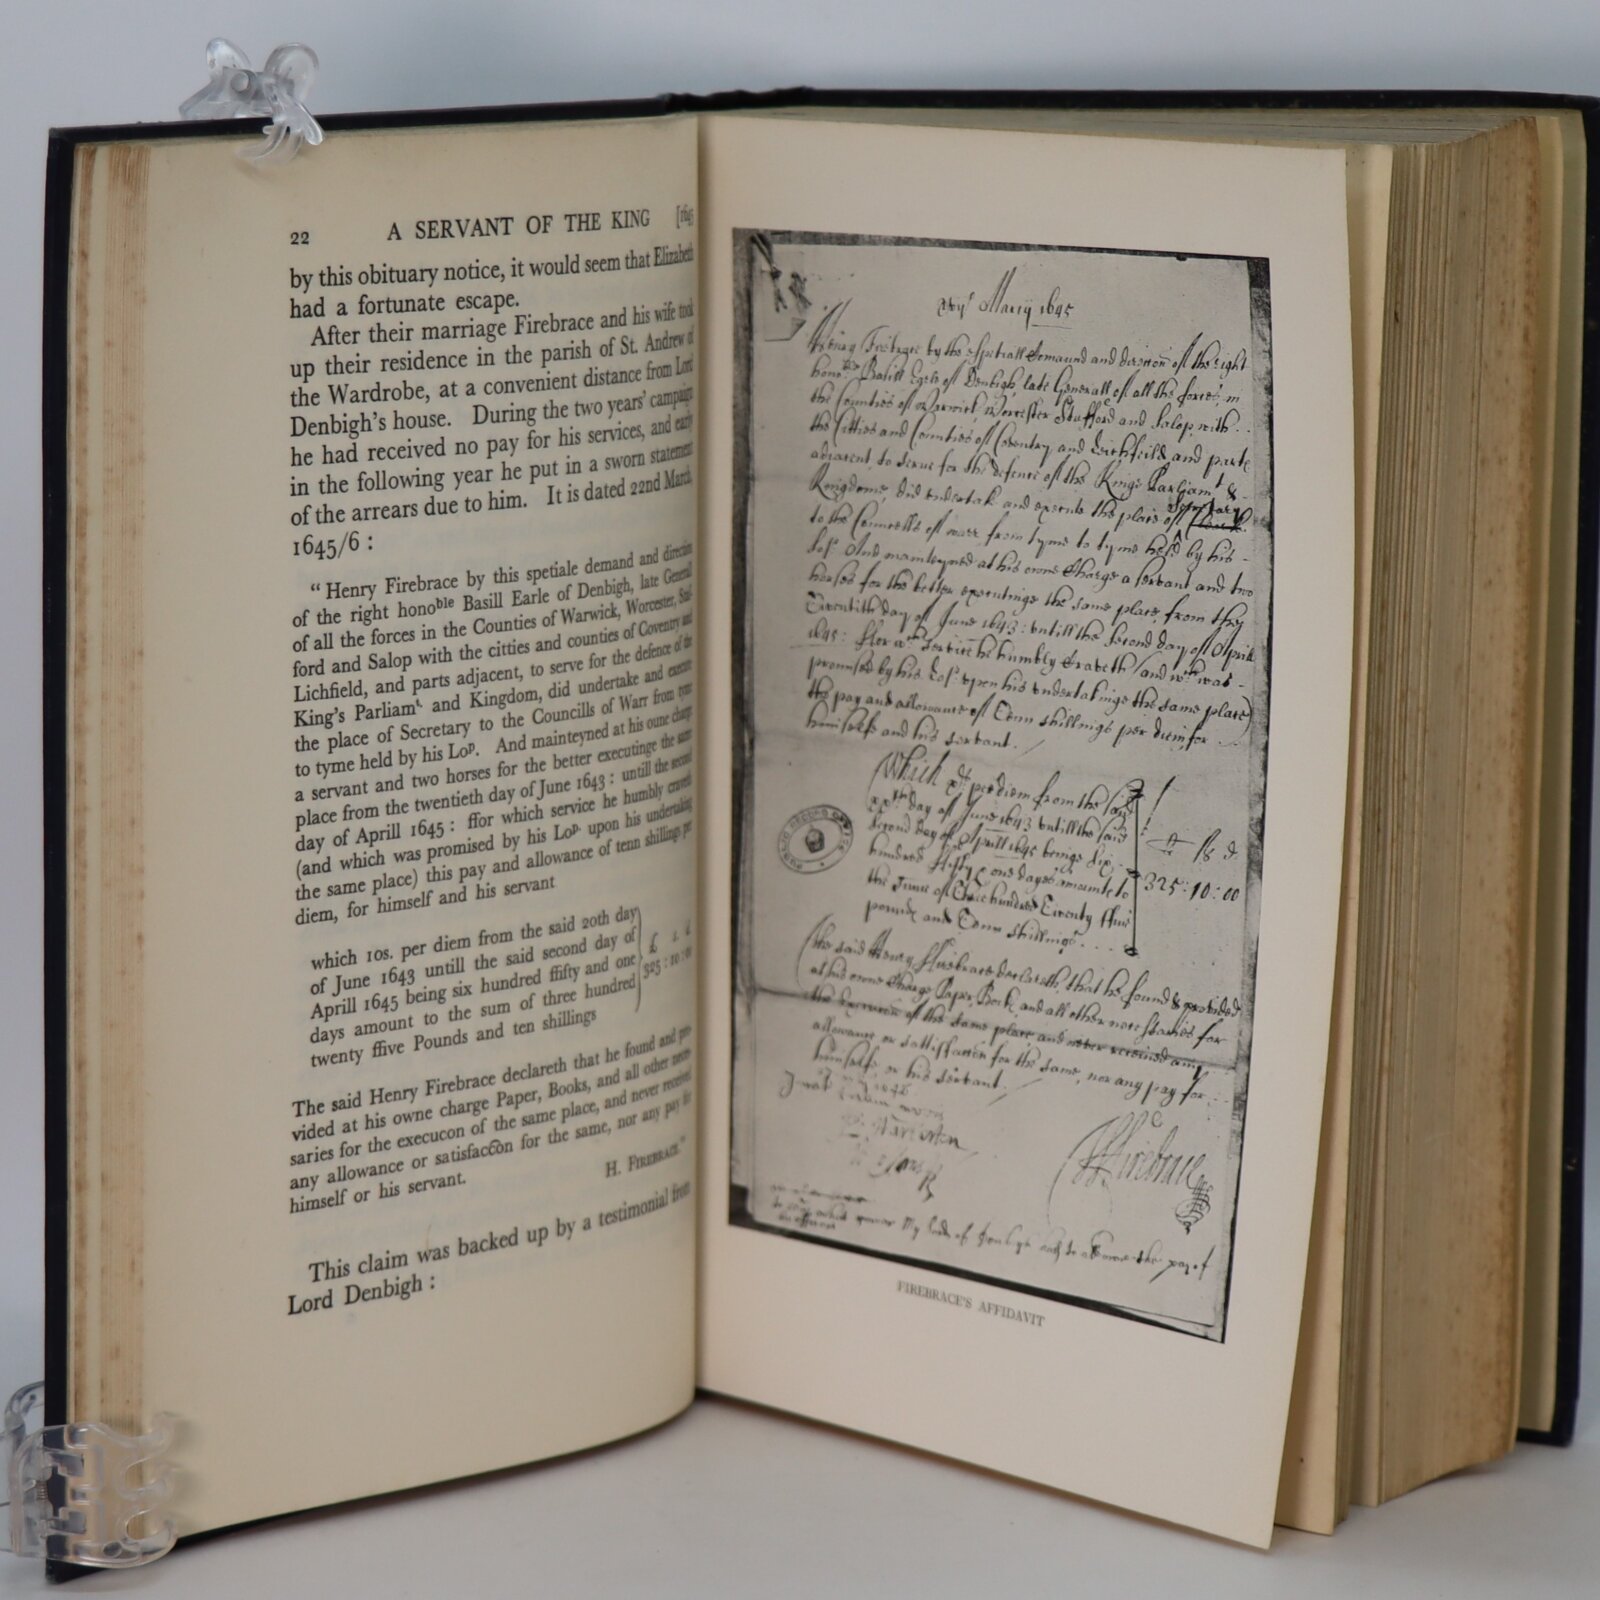 22 A SERVANT OF THE KING [1645
by this obituary notice, it would seem that Elizabeth
had a fortunate escape.
After their marriage Firebrace and his wife took
up their residence in the parish of St. Andrew of
the Wardrobe, at a convenient distance from Lord
Denbigh's house. During the two years' campaign
he had received no pay for his services, and early
in the following year he put in a sworn statement
of the arrears due to him. It is dated 22nd March,
1645/6 :
" Henry Firebrace by this spetiale demand and direction
of the right hono^ble Basill Earle of Denbigh, late Generall
of all the forces in the Counties of Warwick, Worcester, Staf-
ford and Salop with the citties and counties of Coventry and
Lichfield, and parts adjacent, to serve for the defence of the
King's Parliam^t. and Kingdom, did undertake and execute
the place of Secretary to the Councills of Warr from tyme
to tyme held by his Lo^p. And mainteyned at his oune charge
a servant and two horses for the better executinge the same
place from the twentieth day of June 1643 : untill the second
day of Aprill 1645 : ffor which service he humbly craveth
(and which was promised by his Lo^p. upon his undertaking
the same place) this pay and allowance of tenn shillings per
diem, for himself and his servant
which 10s. per diem from the said 20th day
of June 1643 untill the said second day of
Aprill 1645 being six hundred ffifty and one
days amount to the sum of three hundred
twenty ffive Pounds and ten shillings
£ s. d.
325 : 10 : 00
The said Henry Firebrace declareth that he found and pro-
vided at his owne charge Paper, Books, and all other neces-
saries for the execucon of the same place, and never received
any allowance or satisfaccon for the same, nor any pay for
himself or his servant.
H. FIREBRACE."
This claim was backed up by a testimonial from
Lord Denbigh :
Marcij 1645
Henry Firebrace by the spetiall demaund and direction of the right
hono^ble Basill Earle of Denbigh, late Generall of all the forces, in
the Counties of Warwick, Worcester Stafford and Salop, with
the Citties and Counties of Coventry and Lichfeild, and parts
adjacent, to serve for the defence of the Kinge Parliam^t &
Kingdome, did undertake and execute the place of Secretary
to the Councells of warr from tyme to tyme held by his
Lo^p. And mainteyned at his owne Charge a servant and two
horses for the better executinge the same place, from the
Twentith day of June 1643 : untill the second day of Aprill
1645 : ffor w^ch service he humbly craveth (and w^ch was
promised by his Lo^p. upon his undertakinge the same place)
the pay and allowance of Tenn shillings per diem, for
himselfe and his servant.
Which x^s per diem from the said
xx^th day of June 1643 untill the said
second day of Aprill 1645 beinge six
hundred ffifty one dayes amounte to
the summ of Three hundred Twenty ffive
pounds and Tenn shillings
325 : 10 : 00
PUBLIC RECORD OFFICE
The said Henry Firebrace declareth, that he found & provided
at his owne Charge Paper, Bookes, and all other necessaries for
the execucon of the same place, and never received any
allowance or sattisfaccon for the same, nor any pay for
himselfe or his servant.
H Firebrace
FIREBRACE'S AFFIDAVIT